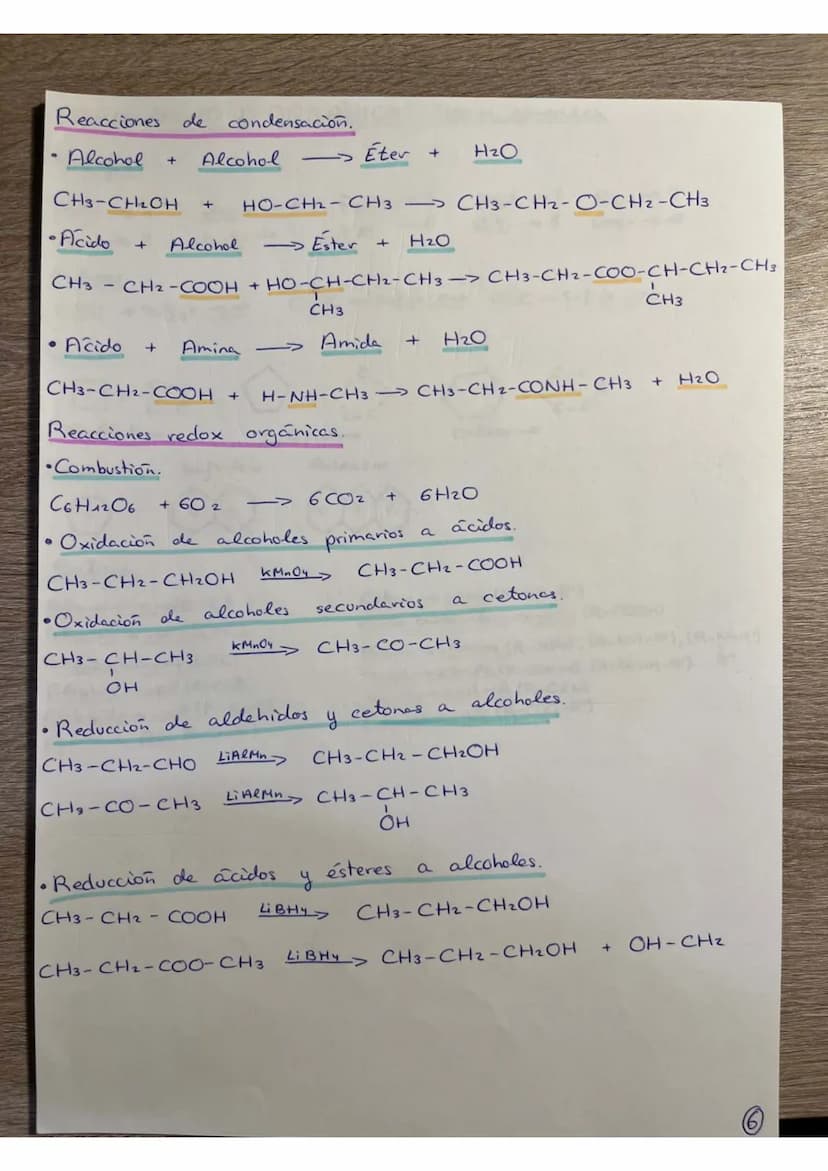 Reacciones de condensación.
• Alcohol + Alcohol ⟶ Éter + H2O
CH3-CH2OH + HO-CH2-CH3 ⟶ CH3-CH2-O-CH2-CH3
• Ácido + Alcohol ⟶ Éster + H2O
CH3-CH2-COOH + HO-CH-CH2-CH3 ⟶ CH3-CH2-COO-CH-CH2-CH3
CH3 CH3
• Ácido + Amina ⟶ Amida + H2O
CH3-CH2-COOH + H-NH-CH3 ⟶ CH3-CH2-CONH-CH3 + H2O
Reacciones redox orgánicas.
• Combustión.
C6H12O6 + 6O2 ⟶ 6CO2 + 6H2O
• Oxidación de alcoholes primarios a ácidos.
CH3-CH2-CH2OH KMnO4⟶ CH3-CH2-COOH
• Oxidación de alcoholes secundarios a cetonas.
CH3-CH-CH3 KMnO4⟶ CH3-CO-CH3
OH
• Reducción de aldehidos y cetonas a alcoholes.
CH3-CH2-CHO LiAlMn⟶ CH3-CH2-CH2OH
CH3-CO-CH3 LiAlMn⟶ CH3-CH-CH3
OH
• Reducción de ácidos y ésteres a alcoholes.
CH3-CH2-COOH LiBH4⟶ CH3-CH2-CH2OH
CH3-CH2-COO-CH3 LiBH4⟶ CH3-CH2-CH2OH + OH-CH2
6